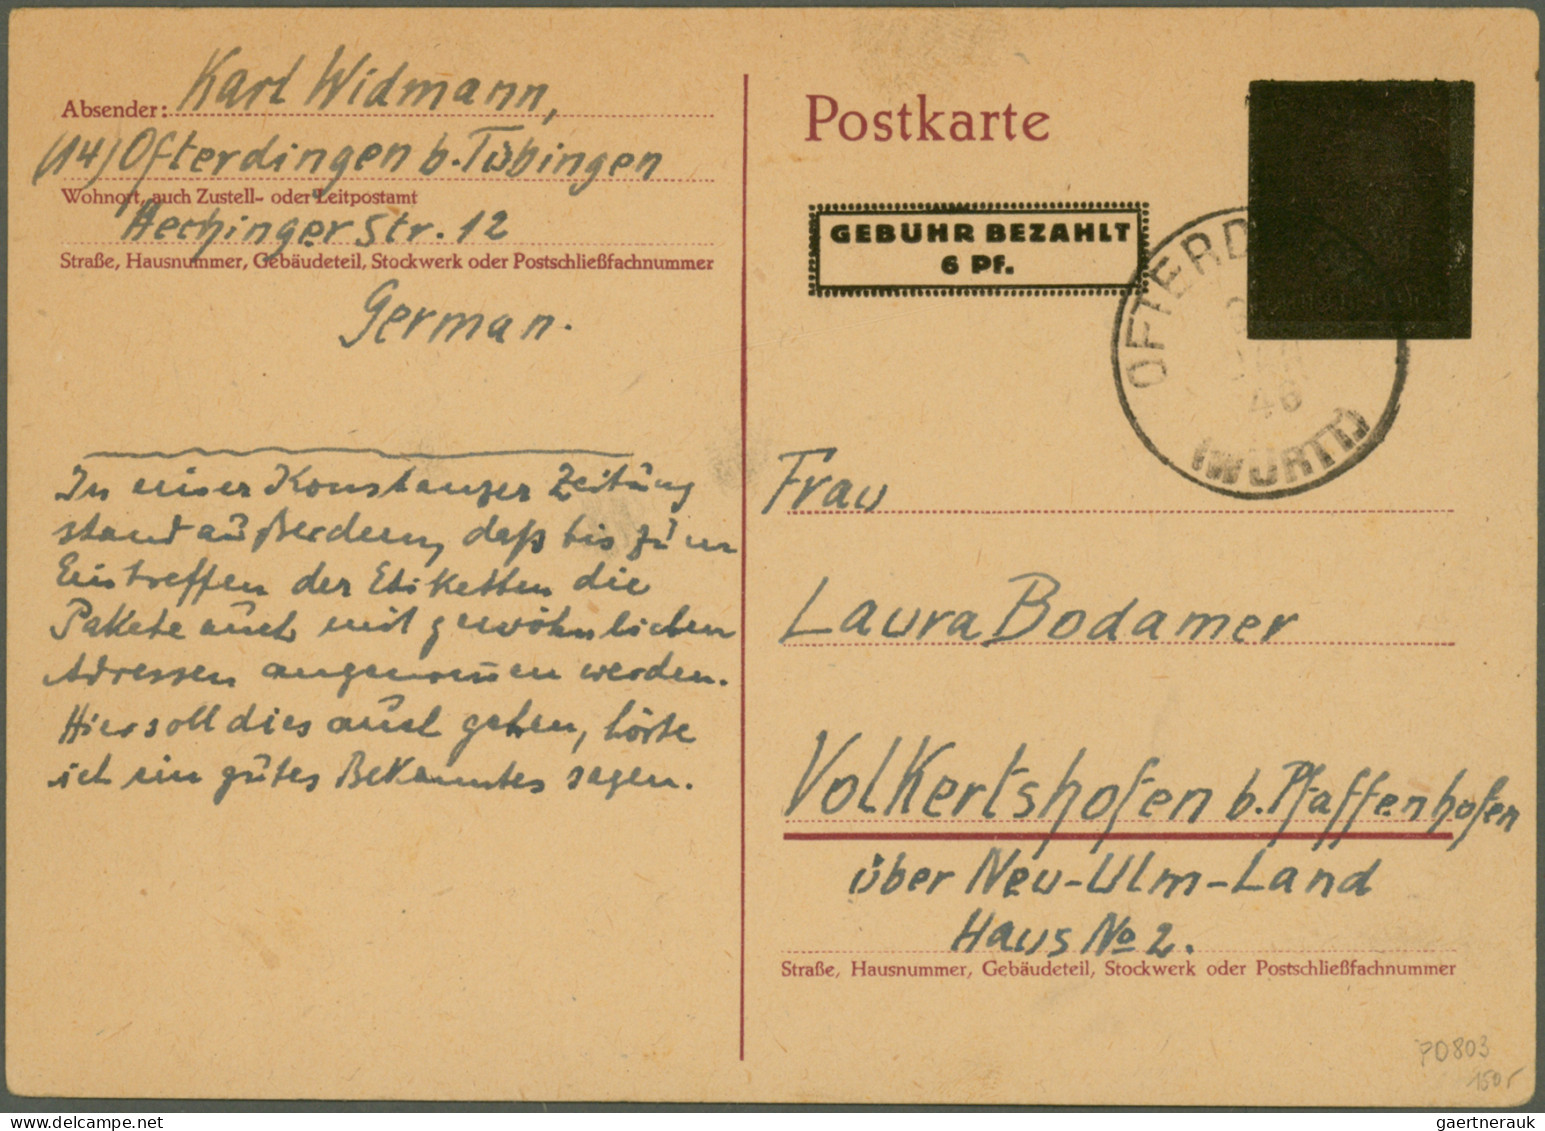 Absender: Karl Widmann,
(14) Ofterdingen b. Tübingen
Wohnort, auch Zustell- oder Leitpostamt
Hechinger Str. 12
Straße, Hausnummer, Gebäudeteil, Stockwerk oder Postschließfachnummer
German.
In einer Konstanzer Zeitung
stand außerdem, daß bis zum
Eintreffen der Etiketten die
Pakete auch mit gewöhnlichen
Adressen angenommen werden.
Hier soll dies auch gehen, hörte
ich ein gutes Bekanntes sagen.
Postkarte
GEBÜHR BEZAHLT
6 Pf.
OFTERD
48
(WÜRTT)
Frau
Laura Bodamer
Volkertshofen b. Pfaffenhofen
über Neu-Ulm-Land
Haus No 2.
Straße, Hausnummer, Gebäudeteil, Stockwerk oder Postschließfachnummer
PO803
150,-
gaertnerauk